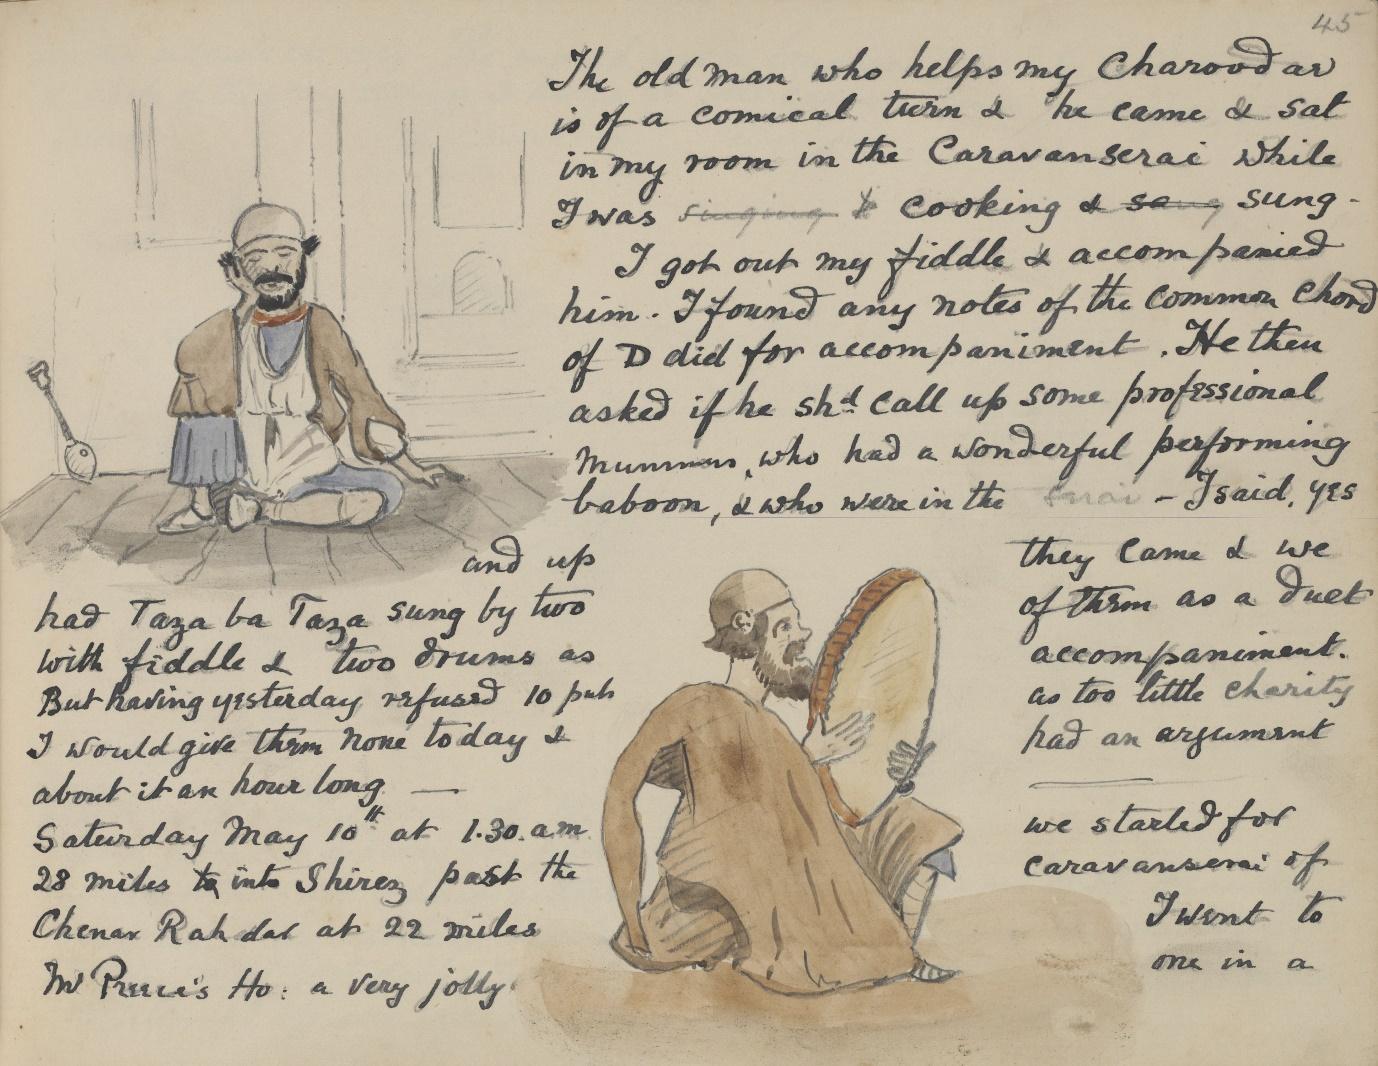 45
The old man who helps my Charoodar
is of a comical turn & he came & sat
in my room in the Caravanserai while
I was singing & cooking & sang sung -
I got out my fiddle & accompanied
him. I found any notes of the common chord
of D did for accompaniment. He then
asked if he shd call up some professional
mummers, who had a wonderful performing
baboon, & who were in the Serai - I said, yes
and up they came & we
had Taza ba Taza sung by two of them as a duet
with fiddle & two drums as accompaniment.
But having yesterday refused 10 puls as too little charity
I would give them none today & had an argument
about it an hour long —
Saturday May 10th at 1.30. a.m we started for
28 miles to into Shirez past the caravanserai of
Chenar Rahdar at 22 miles I went to
Mr Preece's Ho: a very jolly one in a